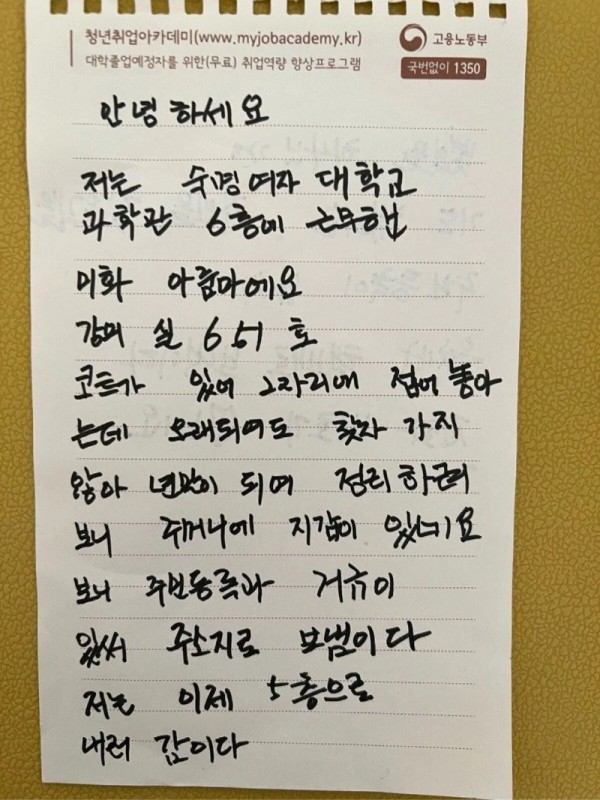 청년취업아카데미(www.myjobacademy.kr)
대학졸업예정자를 위한(무료) 취업역량 향상프로그램
고용노동부
국번없이 1350
안녕하세요
저는 숙명여자 대학교
과학관 6층에 근무햅
미화 아줌마에요
강의 실 651 호
코트가 있어 그자리에 접어 놓아
는데 오래되여도 찾자 가지
않아 년말이 되여 정리하려
보니 주머니에 지갑이 있네요
보니 주민등록과 거규이
있써 주소지로 보냄이다
저는 이제 5층으로
내려 감이다